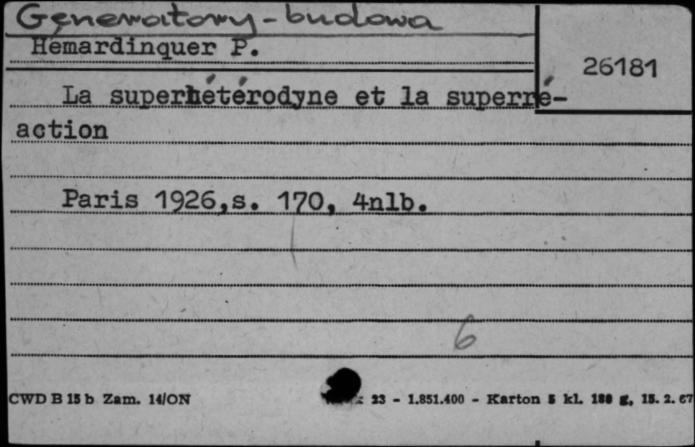 Generatory - budowa
Hémardinquer P.
26181
La superhétérodyne et la superré-
action
Paris 1926,s. 170, 4nlb.
6
CWD B 15 b Zam. 14/ON 23 - 1.851.400 - Karton 5 kl. 180 g, 15. 2. 67